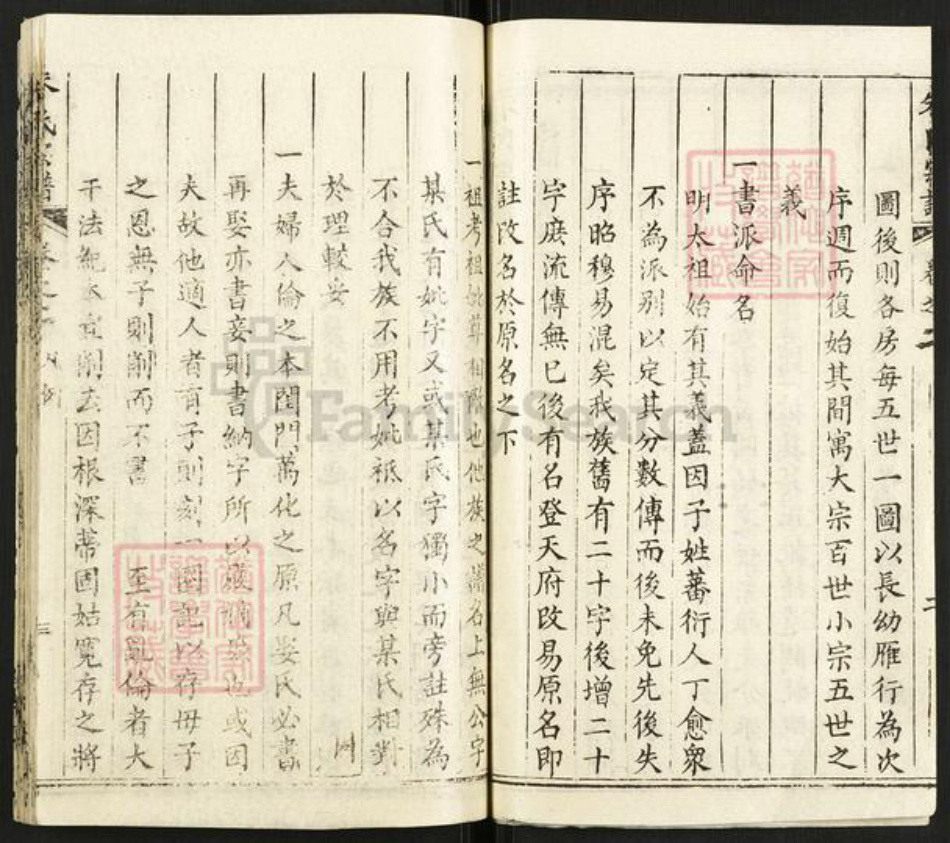 圖後則各房每五世一圖以長幼雁行為次
序週而復始其間寓大宗百世小宗五世之
義
一書派命名
明太祖始有其義蓋因子姓蕃衍人丁愈衆
不為派別以定其分數傳而後未免先後失
序昭穆易混矣我族舊有二十字後增二十
字庶流傳無已後有名登天府改易原名即
註改名於原名之下
一祖考祖妣尊相敵也他族之譜名上無公字
某氏有妣字又或某氏字獨小而旁註殊為
不合我族不用考妣祗以名字與某氏相對
於理較妥
一夫婦人倫之本閨門萬化之原凡娶氏必書
再娶亦書妾則書納字所以嚴嫡庶也或因
夫故他適人者有子則刻一圈記以存母子
之恩無子則削而不書 至有亂倫者大
干法紀本宜削去因根深蒂固姑寬存之將
FamilySearch